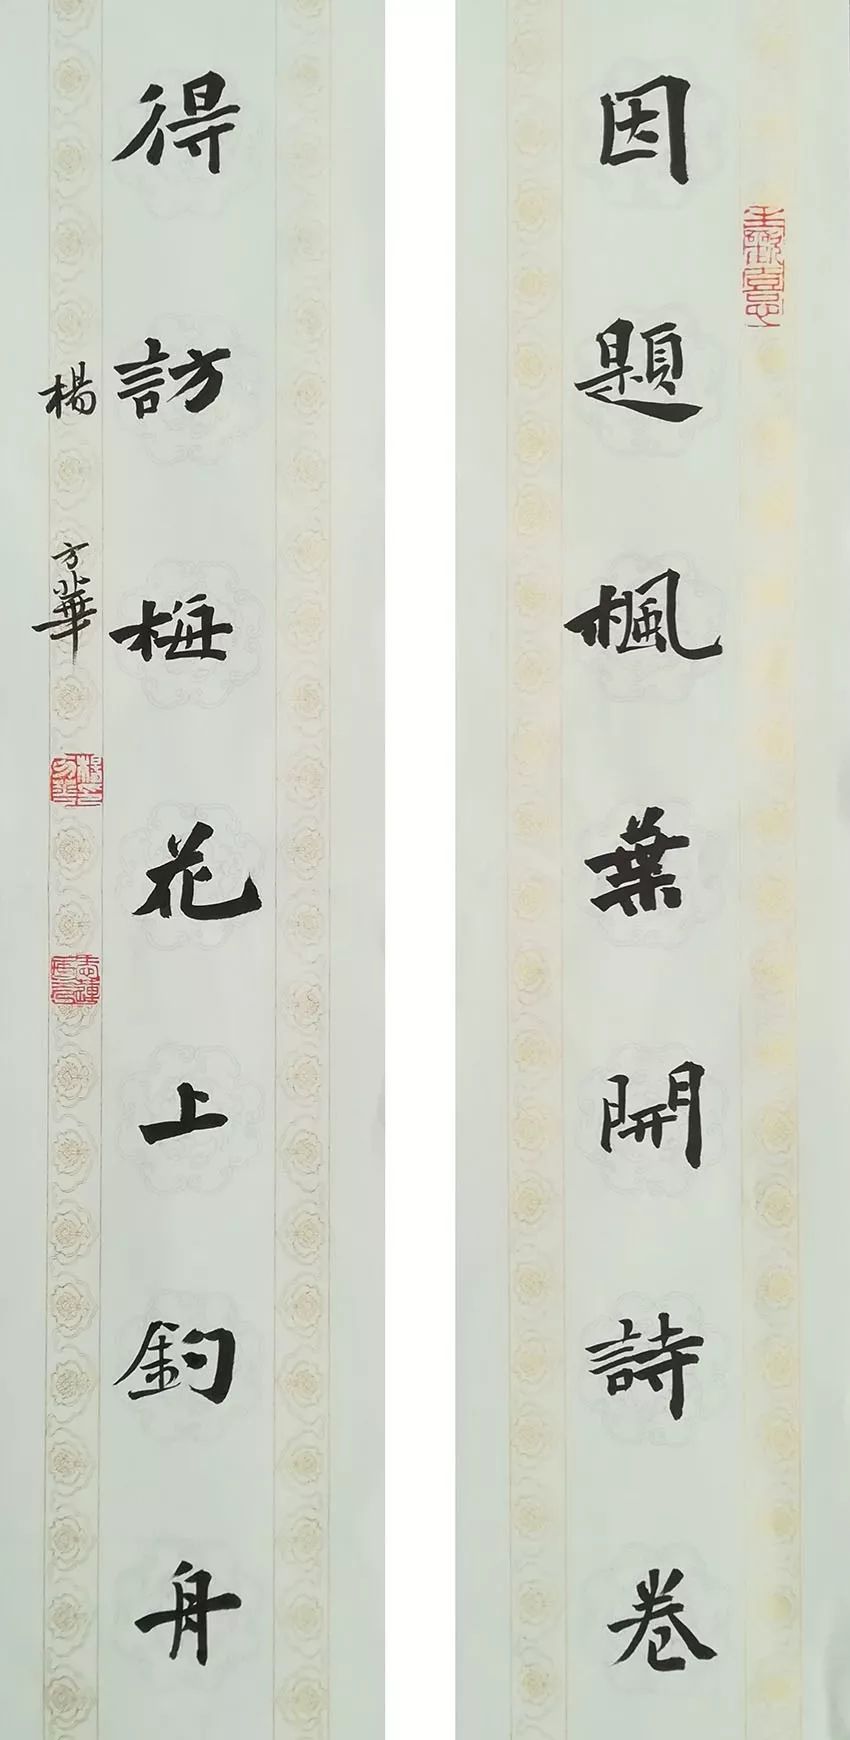 因題楓葉開詩卷
得訪梅花上釣舟
楊方華